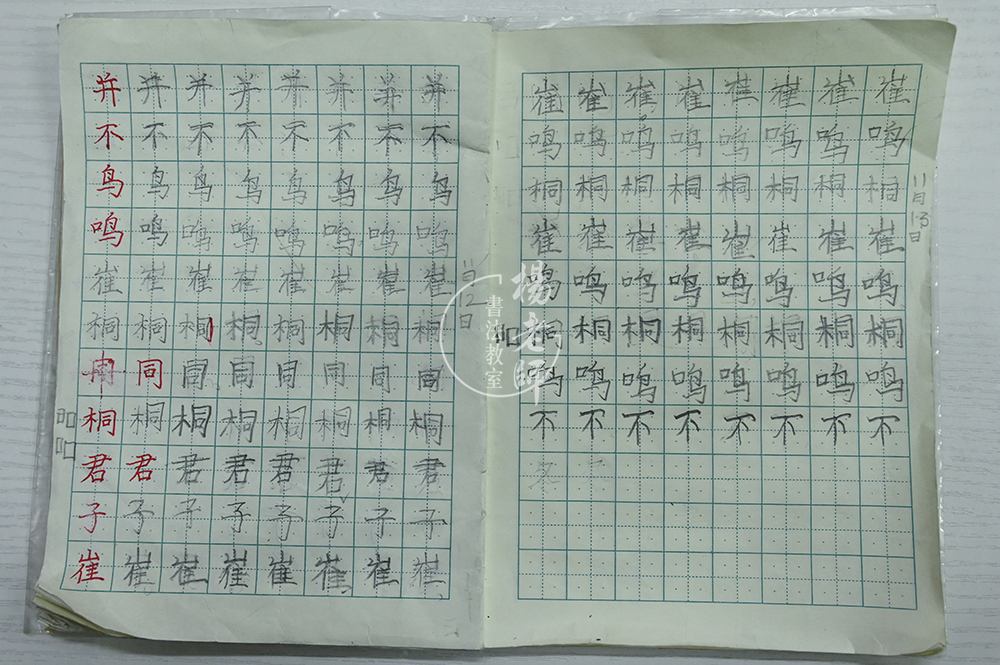 并并并并并并并并
不不不不不不不不
鸟鸟鸟鸟鸟鸟鸟鸟
鸣鸣鸣鸣鸣鸣鸣鸣
崔崔崔崔崔崔崔崔
桐桐桐桐桐桐桐桐
同同同同同同同同
桐桐桐桐桐桐桐桐
君君君君君君君君
子子子子子子子子
崔崔崔崔崔崔崔崔
11月12日
崔崔崔崔崔崔崔崔
鸣鸣鸣鸣鸣鸣鸣鸣
桐桐桐桐桐桐桐桐
崔崔崔崔崔崔崔崔
鸣鸣鸣鸣鸣鸣鸣鸣
桐桐桐桐桐桐桐桐
鸣鸣鸣鸣鸣鸣鸣鸣
不不不不不不不不
11月13日
楊老師
書法教室